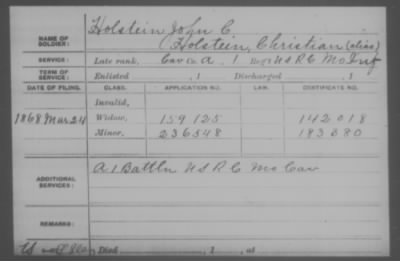 NAME OF SOLDIER: Holstein, John C.
Holstein, Christian (alias)
SERVICE: Late rank, Cav Co. A, 1 Reg't U S R C Mo Inf
TERM OF SERVICE: Enlisted , 1 Discharged , 1
DATE OF FILING. CLASS. APPLICATION NO. LAW. CERTIFICATE NO.
Invalid,
1868 Mar 24 Widow, 159 125 142 018
Minor, 236548 183 880
ADDITIONAL SERVICES: A 1 Battln U S R C Mo Cav
REMARKS:
Died , 1 , at